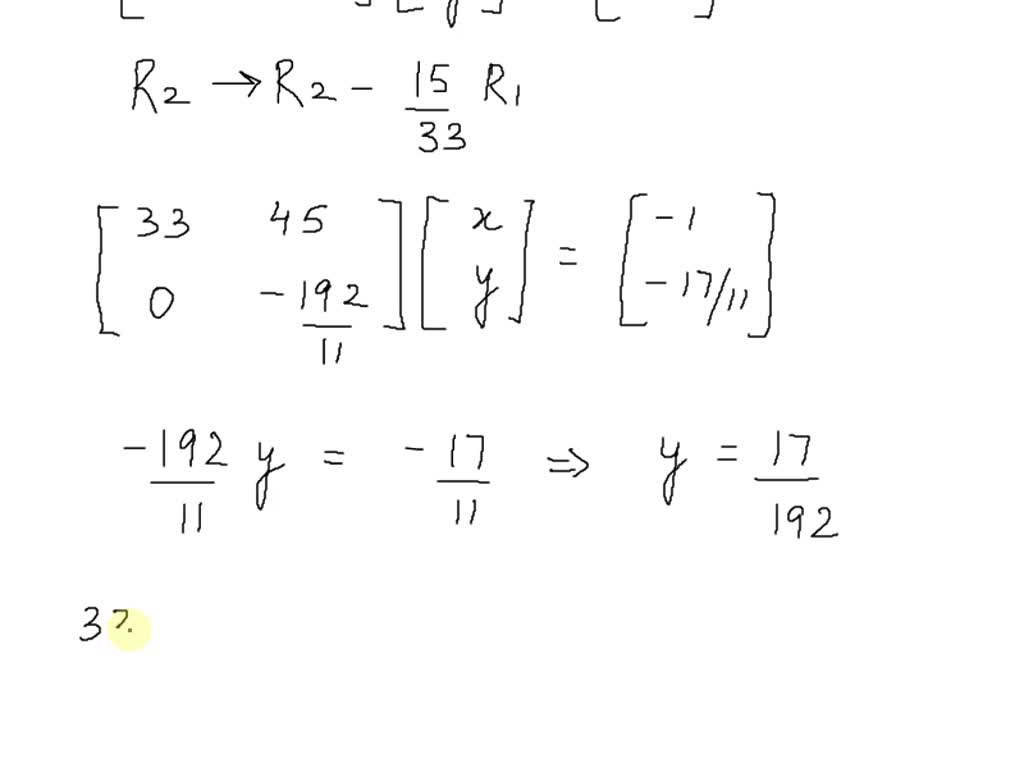 [ ] [ y ] [ ]
R2 → R2 - 15/33 R1
[ 33 45 ] [ x ] = [ -1 ]
[ 0 -192/11 ] [ y ] [ -17/11 ]
-192/11 y = -17/11 ⇒ y = 17/192
3